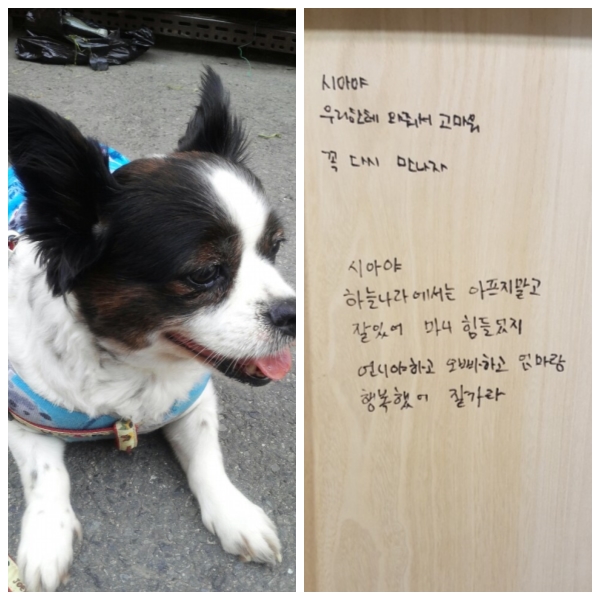 시아야
우리한테 와줘서 고마워
꼭 다시 만나자
시아야
하늘나라에서는 아프지말고
잘있어 마니 힘들었지
언니야하고 오빠하고 엄마랑
행복했어 잘가라